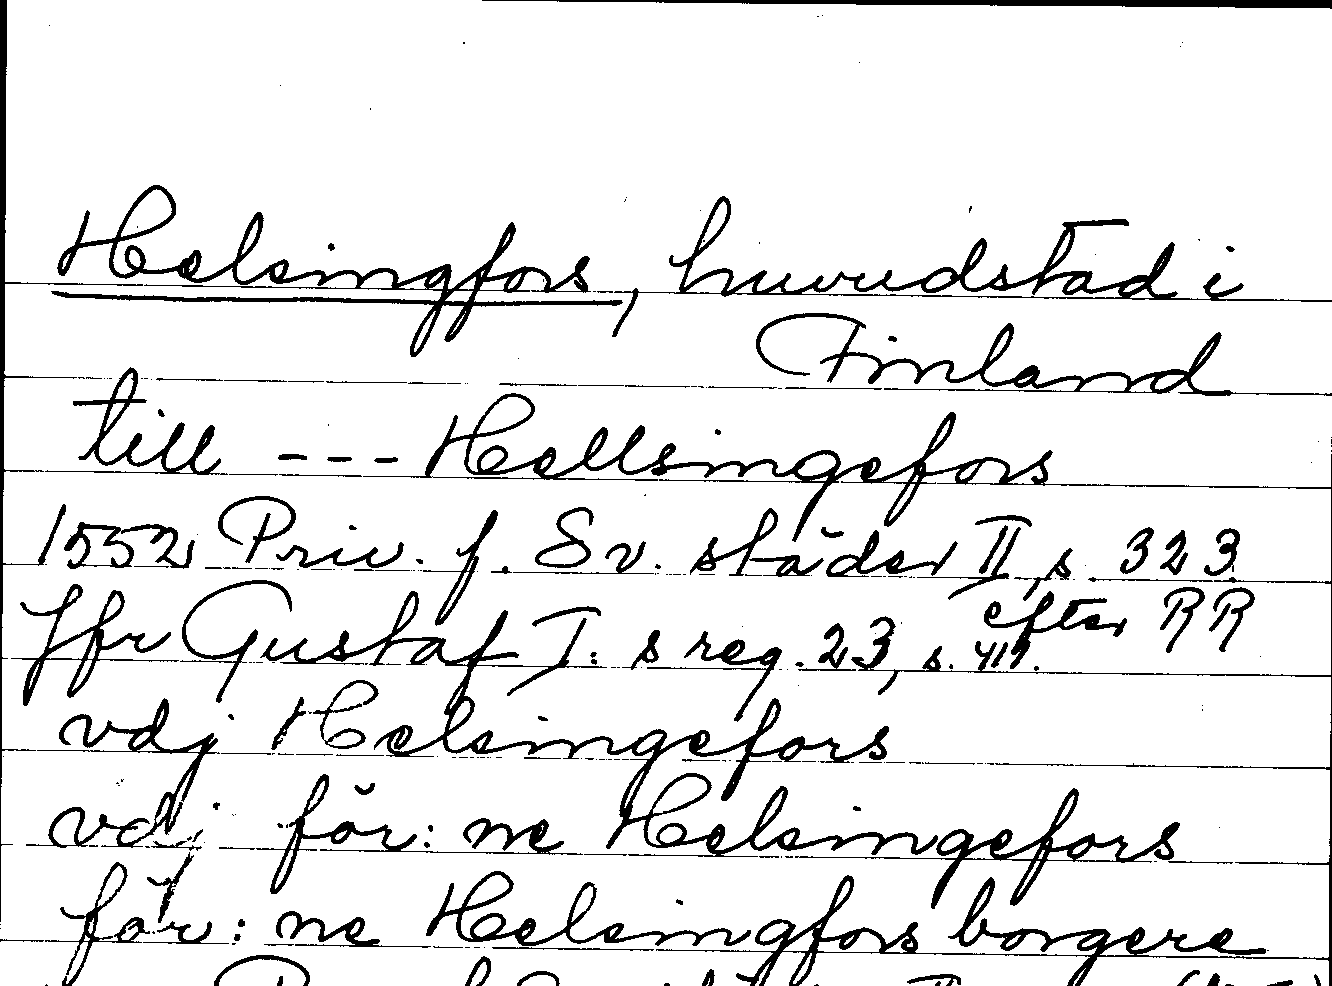 Helsingfors, huvudstad i
Finland
till --- Hellsingefors
1552 Priv. f. Sv. städer II, s. 323.
Jfr Gustaf I: s reg. 23, s. 419. efter RR
vdj Helsingefors
vdj för: ne Helsingefors
för: ne Helsingfors borgere